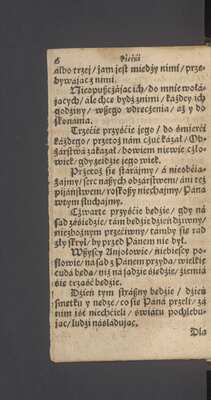 6 Pieśń
albo trzej / jam jest miedzy nimi / prze-
bywając z nimi.
Nieopuszczając ich / do mnie woła-
jących / ale chce bydź z nimi / każdey ich
godziny / wszego vdręczenia / aż y do
skonania.
Trzećie przyśćie jego / do śmierći
każdego / przetoż nam czuć kazał / Ob-
żarstwa zakazał / bowiem niewie czło-
wiek / gdy zeidzie jego wiek.
Przetoż sie starajmy / á nieobćia-
żajmy / serc naszych obżarstwem / áni też
pijáństwem / roskoszy niechajmy / Páná
wtym słuchajmy.
Czwarte przyśćie będzie / gdy ná
sąd zásiędzie / tám będzie dzień dziwny /
niezbożnym przećiwny / támby sie rad
zły skrył / by przed Pánem nie był.
Wszyscy Anjołowie / niebiescy po-
słowie / ná sąd z Pánem przydą / wielkie
cudá będą / niż ná sądzie siędzie / źiemiá
sie trząść będzie.
Dzień tym strászny będzie / dzień
smetku y nędze / co sie Páná przeli / zá
nim iść niechćieli / świátu pochlebu-
jąc / ludzi násládując,
Dla